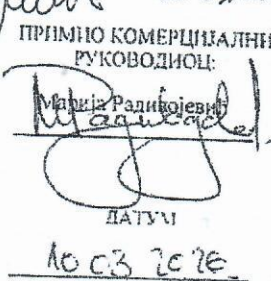 ПРИМИО КОМЕРЦИЈАЛНИ
РУКОВОДИОЦ:
Марија Радивојевић
ДАТУМ
10 03 2026